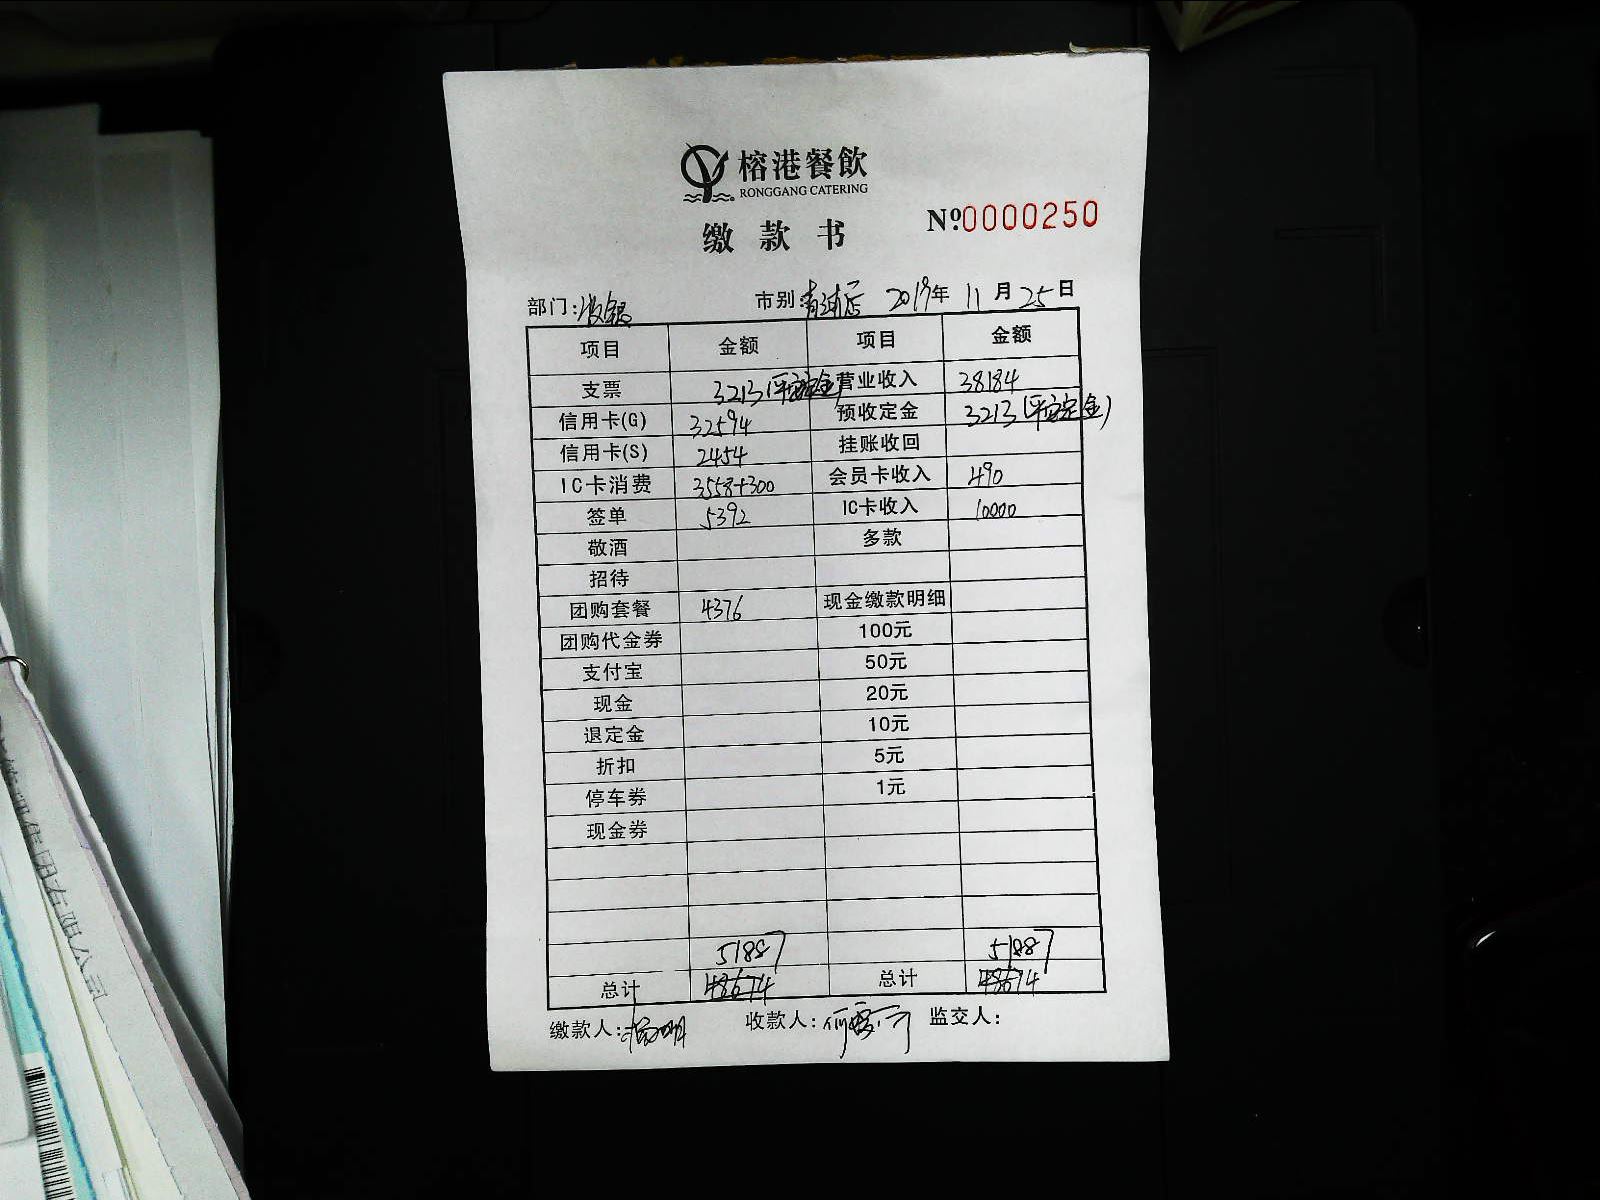 榕港餐飲
RONGGANG CATERING
缴款书
№:0000250
部门:收银 市别: 2019年 11月25日
项目 金额 项目 金额
支票 3213(平安定金) 营业收入 38184
信用卡(G) 32594 预收定金 3213(平安定金)
信用卡(S) 2454 挂账收回
IC卡消费 3558+300 会员卡收入 490
签单 5392 IC卡收入 10000
敬酒 多款
招待
团购套餐 4376 现金缴款明细
团购代金券 100元
支付宝 50元
现金 20元
退定金 10元
折扣 5元
停车券 1元
现金券
51887 51887
总计 48674 总计 48674
缴款人: 收款人: 监交人: